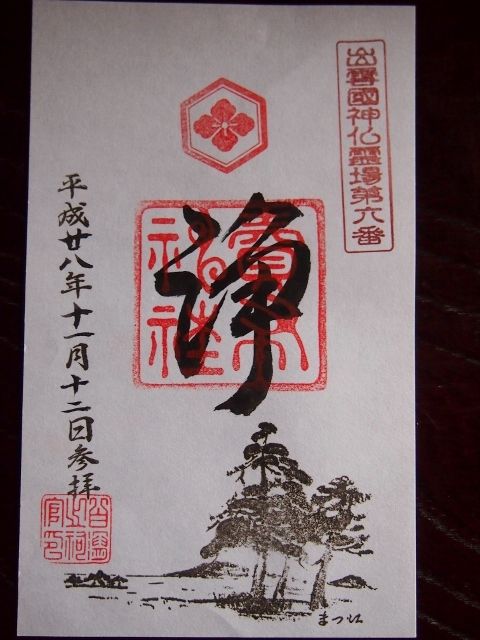 出雲國神仏霊場第六番
賣布
神社
浄
平成廿八年十一月十二日参拝
まつ江